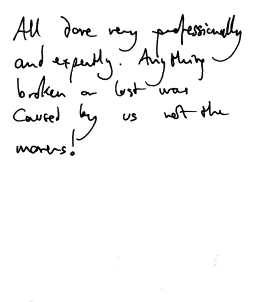 All done very professionally
and expertly. Anything
broken or lost was
caused by us not the
movers!